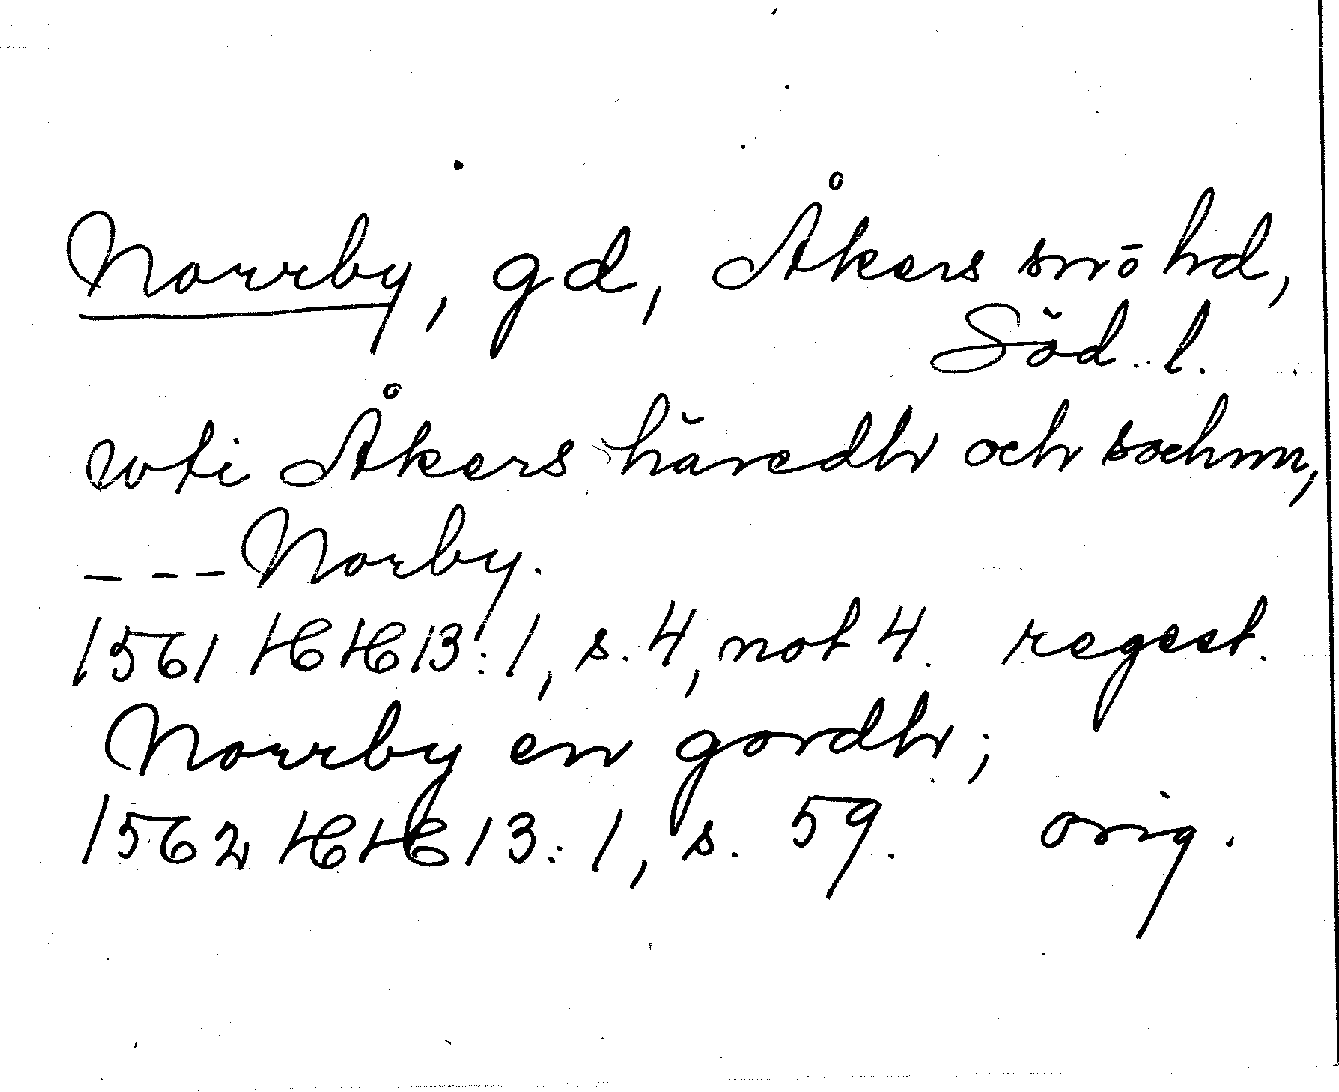 Norrby, gd, Åkers sn o hd,
Söd. l.
wti Åkers häredh och sochnn,
--- Norby.
1561 HH 13:1, s. 4, not 4. regest.
Norrby en gordh;
1562 HH 13:1, s. 59. orig.